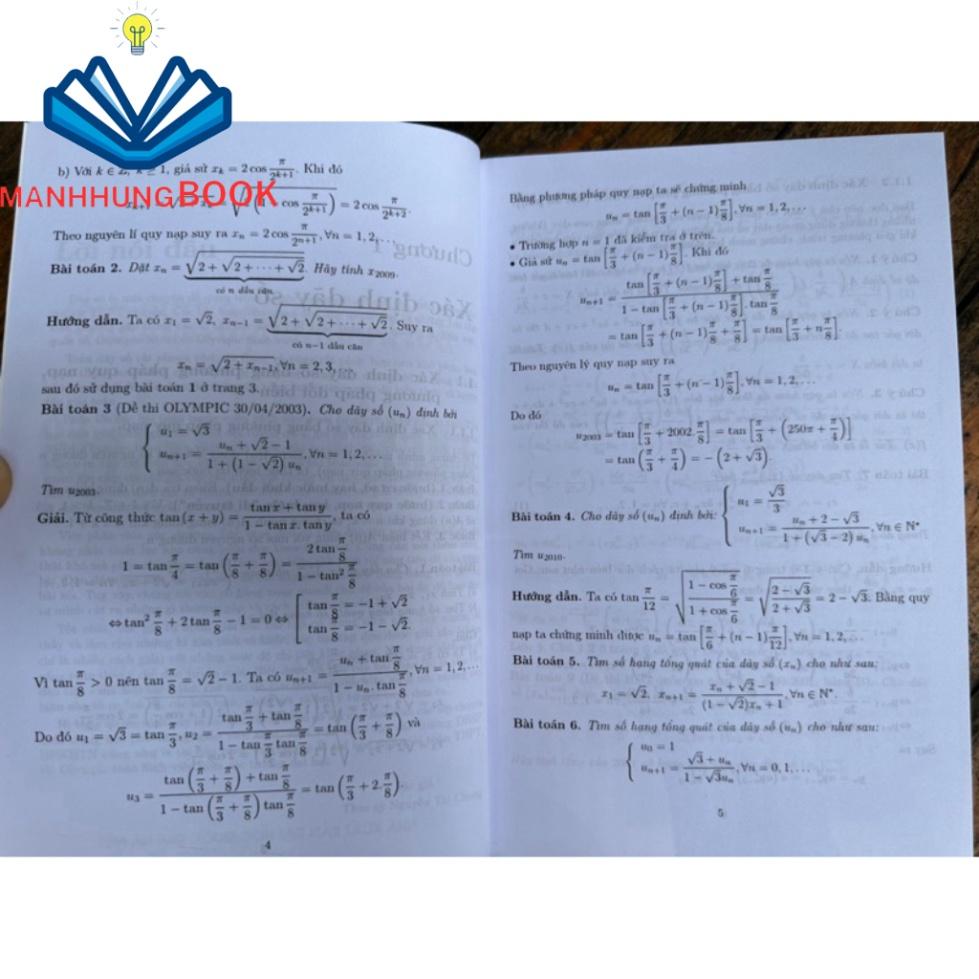 MANHHUNGBOOK
b) Với k ∈ Z, k ≥ 1, giả sử x_k = 2 cos π/2^{k+1}. Khi đó
= 2 cos π/2^{k+2}.
Theo nguyên lí quy nạp suy ra x_n = 2 cos π/2^{n+1}, ∀n = 1, 2, …
Bài toán 2. Đặt x_n = √(2 + √(2 + ··· + √2)). Hãy tính x_2009.
có n dấu căn
Hướng dẫn. Ta có x_1 = √2, x_{n−1} = √(2 + √(2 + ··· + √2)). Suy ra
có n−1 dấu căn
x_n = √(2 + x_{n−1}), ∀n = 2, 3, …
sau đó sử dụng bài toán 1 ở trang 3.
Bài toán 3 (Đề thi OLYMPIC 30/04/2003). Cho dãy số (u_n) định bởi
{ u_1 = √3
u_{n+1} = (u_n + √2 − 1)/(1 + (1 − √2) u_n), ∀n = 1, 2, …
Tìm u_2003.
Giải. Từ công thức tan(x + y) = (tan x + tan y)/(1 − tan x. tan y), ta có
1 = tan π/4 = tan(π/8 + π/8) = (2 tan π/8)/(1 − tan² π/8)
⇔ tan² π/8 + 2 tan π/8 − 1 = 0 ⇔ [ tan π/8 = −1 + √2
tan π/8 = −1 − √2.
Vì tan π/8 > 0 nên tan π/8 = √2 − 1. Ta có u_{n+1} = (u_n + tan π/8)/(1 − u_n. tan π/8), ∀n = 1, 2, …
Do đó u_1 = √3 = tan π/3, u_2 = (tan π/3 + tan π/8)/(1 − tan π/3 tan π/8) = tan(π/3 + π/8) và
u_3 = (tan(π/3 + π/8) + tan π/8)/(1 − tan(π/3 + π/8) tan π/8) = tan(π/3 + 2.π/8).
4
Bằng phương pháp quy nạp ta sẽ chứng minh
u_n = tan[π/3 + (n − 1)π/8], ∀n = 1, 2, …
• Trường hợp n = 1 đã kiểm tra ở trên.
• Giả sử u_n = tan[π/3 + (n − 1)π/8]. Khi đó
u_{n+1} = (tan[π/3 + (n − 1)π/8] + tan π/8)/(1 − tan[π/3 + (n − 1)π/8]. tan π/8)
= tan[π/3 + (n − 1)π/8 + π/8] = tan[π/3 + nπ/8].
Theo nguyên lý quy nạp suy ra
u_n = tan[π/3 + (n − 1)π/8], ∀n = 1, 2, …
Do đó
u_2003 = tan[π/3 + 2002.π/8] = tan[π/3 + (250π + π/4)]
= tan(π/3 + π/4) = −(2 + √3).
Bài toán 4. Cho dãy số (u_n) định bởi: { u_1 = √3/3
u_{n+1} = (u_n + 2 − √3)/(1 + (√3 − 2) u_n), ∀n ∈ N*.
Tìm u_2010.
Hướng dẫn. Ta có tan π/12 = √((1 − cos π/6)/(1 + cos π/6)) = √((2 − √3)/(2 + √3)) = 2 − √3. Bằng quy
nạp ta chứng minh được u_n = tan[π/6 + (n − 1)π/12], ∀n = 1, 2, …
Bài toán 5. Tìm số hạng tổng quát của dãy số (x_n) cho như sau:
x_1 = √2, x_{n+1} = (x_n + √2 − 1)/((1 − √2)x_n + 1), ∀n ∈ N*.
Bài toán 6. Tìm số hạng tổng quát của dãy số (u_n) cho như sau:
{ u_0 = 1
u_{n+1} = (√3 + u_n)/(1 − √3u_n), ∀n = 0, 1, …
5